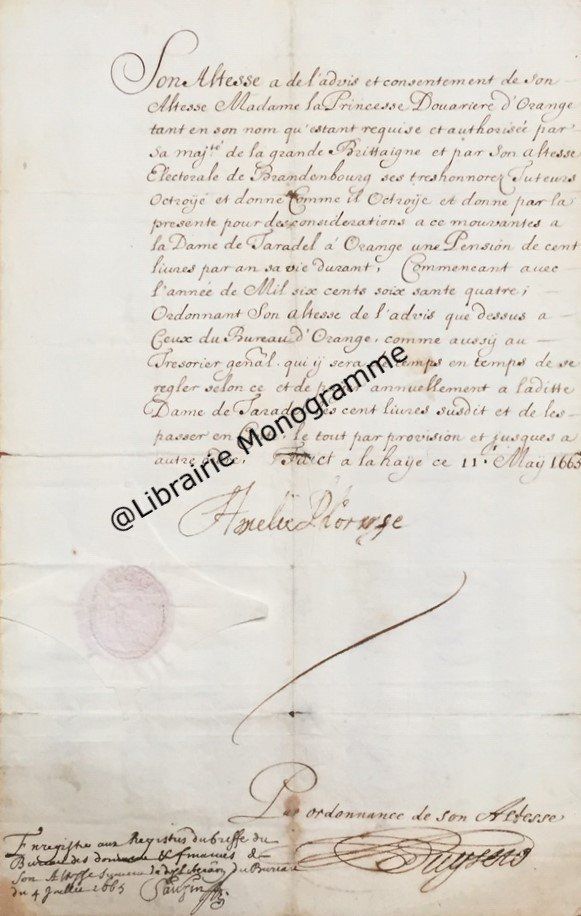 Son Altesse a de l'advis et consentement de son
Altesse Madame la Princesse Douariere d'Orange
tant en son nom qu'estant requise et authorisée par
sa maj.té de la grande Brittaigne et par son altesse
Electorale de Brandenbourg ses treshonnorez Tuteurs
Octroÿé et donné Comme il Octroÿe et donne par la
presente pour des considerations a ce mouvantes a
la Dame de Taradel à Orange une Pension de cent
livres par an sa vie durant, Commencant avec
l'année de Mil six cents soix sante quatre;
Ordonnant Son altesse de l'advis que dessus a
Ceux du Bureau d'Orange, comme aussÿ au
Tresorier gen̄al qui ÿ sera de temps en temps de se
regler selon ce et de annuellement a laditte
Dame de Taradel les cent livres susdit et de les
passer en le tout par provision et jusques a
autre Faict a la haÿe ce 11.e Maÿ 1665
@Librairie Monogramme
Amelie D'Orange
Par ordonnance de son Altesse
Enregistré aux Registres du greffe du
Bureau des domaines & finances de
Son Altesse du Bureau
du 4 Juillet 1665